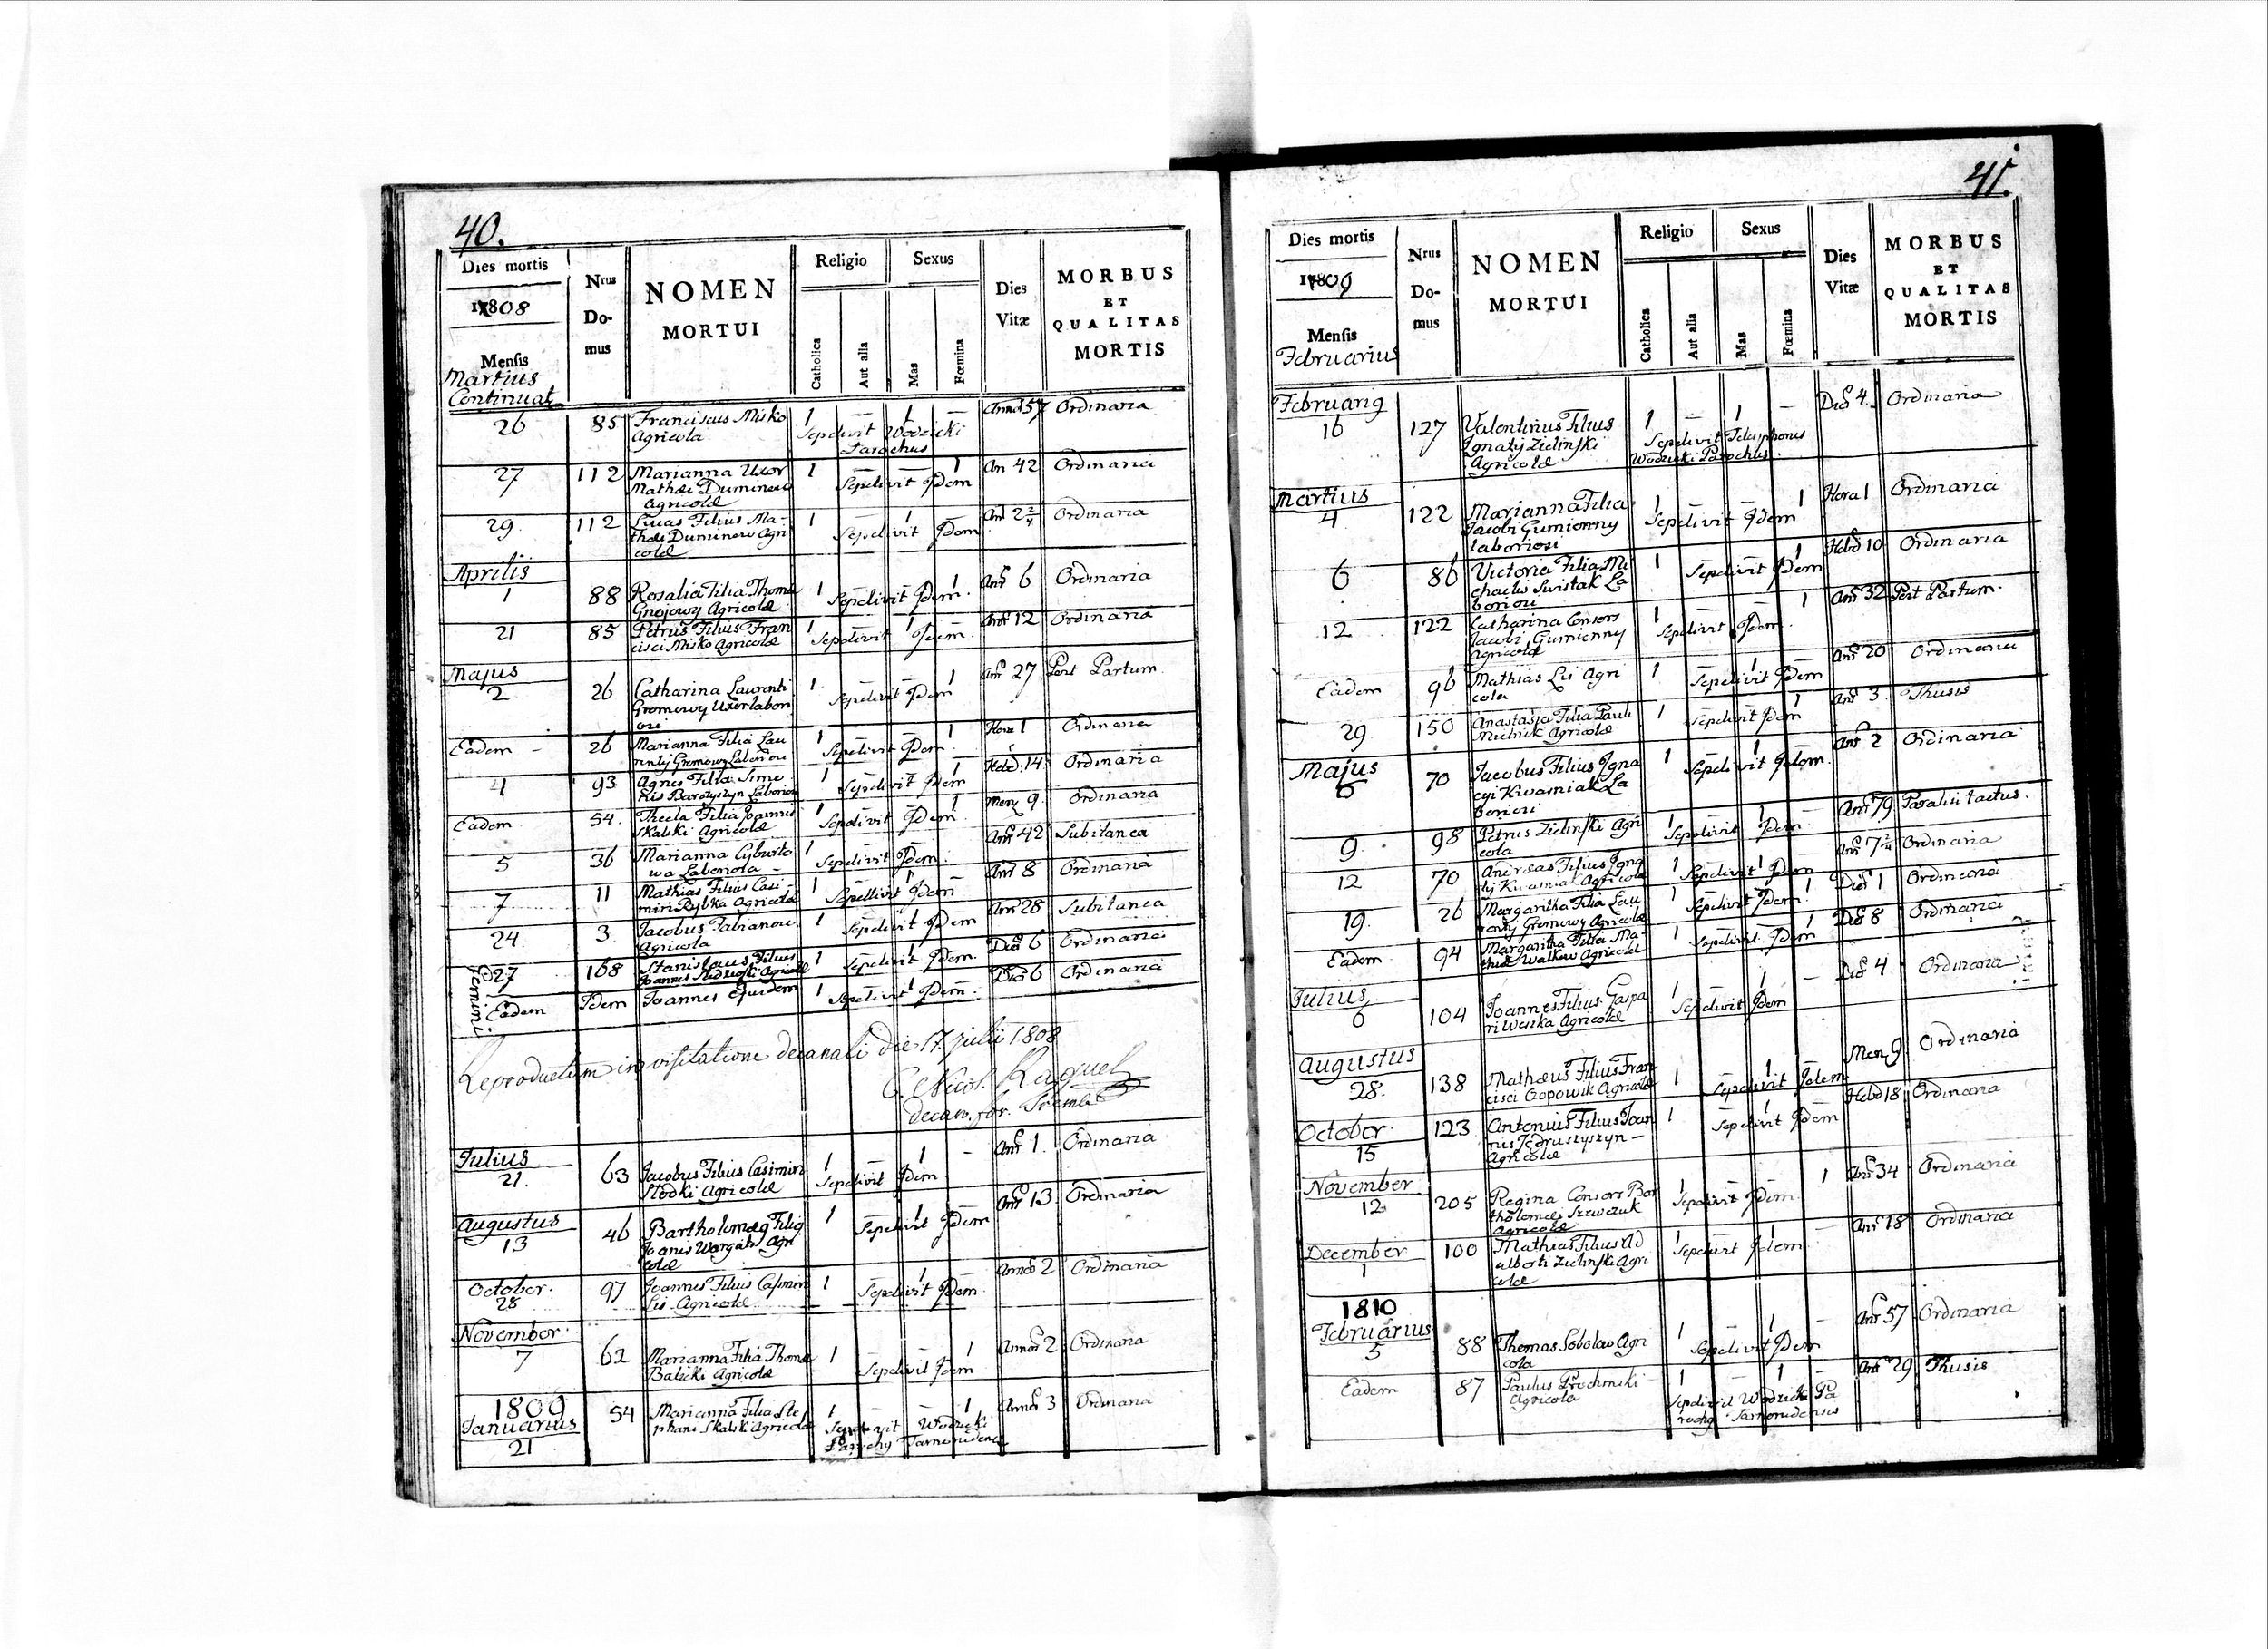 40.
Dies mortis
1808
Mensis
Martius
Continuat
Nrus
Do-
mus
NOMEN
MORTUI
Religio
Catholica
Aut alia
Sexus
Mas
Fœmina
Dies
Vitæ
MORBUS
ET
QUALITAS
MORTIS
26 85 Franciscus Misko 1 — 1 — 57 Ordinaria
Agricola Sepelivit Wodzicki
Parochus
27 112 Marianna Uxor 1 — — 1 An 42 Ordinaria
Mathæi Duminew Sepelivit Idem
Agricolæ
29. 112 Lucas Filius Ma- 1 — 1 — 2 2/4 Ordinaria
thæi Duminew Agri Sepelivit Idem
colæ
Aprilis
1 88 Rosalia Filia Thomæ 1 — — 1 6 Ordinaria
Gnojowy Agricolæ Sepelivit Idem.
21 85 Petrus Filius Fran 1 — 1 — 12 Ordinaria
cisci Misko Agricolæ Sepelivit Idem
Majus
2 26 Catharina Laurenti 1 — — 1 27 Post Partum
Gromowy Uxor labori Sepelivit Idem
osi
Eadem - 26 Marianna Filia Lau 1 — — 1 Hora 1 Ordinaria
rentij Gromowy Laboriosi Sepelivit Idem
4 93 Agnes Filia Sime 1 — — 1 Hebd: 14 Ordinaria
Sepelivit Idem
Eadem 54. Thecla Filia Joannis 1 — — 1 9 Ordinaria
Skalski Agricolæ Sepelivit Idem
5 36 Marianna 1 42 Subitanea
wa Laboriosa - Sepelivit Idem
7 11 Mathias Filius Casi- 1 — 1 — 8 Ordinaria
miri Rybka Agricolæ Sepellivit Idem
24 3. Jacobus 1 28 Subitanea
Agricola Sepelivit Idem
Gemini
27 168 Stanislaus Filius 1 — 1 — 6 Ordinaria
Joannis Agricolæ Sepelivit Idem.
Eadem Idem Joannes Ejusdem 1 — 1 — 6 Ordinaria
Sepelivit Idem.
Reproductum in visitatione decanali die 17. julii 1808
Raguel
decan. for. Trembl
Julius
21. 63 Jacobus Filius Casimiri 1 — 1 - 1. Ordinaria
Slodki Agricolæ Sepelivit Idem
Augustus
13 46 Filig 1 — 1 — 13 Ordinaria
Joanis Agri Sepelivit Idem
colæ
October. 97 Joannes Filius Casimiri 1 — 1 — 2 Ordinaria
28 Lis Agricolæ Sepelivit Idem
November
7 62 Marianna Filia Thomæ 1 — — 1 2 Ordinaria
Balicki Agricolæ Sepelivit Idem
1809
Januarius 54 Marianna Filia Ste 1 — — 1 3 Ordinaria
21 phani Skalski Agricolæ Wodzicki
41.
Dies mortis
1809
Mensis
Februarius
Nrus
Do-
mus
NOMEN
MORTUI
Religio
Catholica
Aut alia
Sexus
Mas
Fœmina
Dies
Vitæ
MORBUS
ET
QUALITAS
MORTIS
Februarig
16 127 Valentinus Filius 1 — 1 — 4. Ordinaria
Ignatij Zielinski Sepelivit Telesphorus
Agricolæ Wodzicki Parochus.
Martius
4 122 Marianna Filia 1 — — 1 Hora 1 Ordinaria
Jacobi Gumienny Sepelivit Idem
laboriosi
6 86 Victoria Filia Mi 1 — — 1 10 Ordinaria
chaelis Swistak La Sepelivit Idem
boriosi
12 122 Catharina Consors 1 — — 1 32 Post Partum.
Jacobi Gumienny Sepelivit Idem
Agricolæ
Eadem 96 Mathias Lis Agri 1 — 1 20 Ordinaria
cola Sepelivit Idem
29 150 Anastasia Filia Pauli 1 — — 1 3 Thusis
Agricolæ Sepelivit Idem
Majus
6 70 Jacobus Filius Igna 1 — 1 2 Ordinaria
cyi Kwasniak La Sepelivit Idem.
boriosi
9 98 Petrus Zielinski Agri 1 — 1 — 79 Paralisi tactus.
cola Sepelivit Idem
12 70 Andreas Filius Igna 1 — 1 — 7 2/4 Ordinaria
tij Kwasniak Agricolæ Sepelivit Idem
19. 26 Margaritha Filia Lau 1 — — 1 1 Ordinaria
rentij Gromowy Agricolæ Sepelivit Idem.
Eadem 94 Margaritha Filia Ma- 1 — — 1 8 Ordinaria
thiæ Walkow Agricolæ Sepelivit. Idem
Julius
6 104 Joannes Filius Gaspa 1 — 1 — 4 Ordinaria
ri Weska Agricolæ Sepelivit Idem
Augustus
28. 138 Mathæus Filius Fran 1 — 1 — 9 Ordinaria
cisci Czopowik Agricolæ Sepelivit Idem
October 123 Antonius Filius Joan 1 — 1 — 18 Ordinaria
15 nis Jędruszyszyn - Sepelivit Idem
Agricolæ
November
12 205 Regina Consors Bar 1 — — 1 34 Ordinaria
tholomei Szewczuk Sepelivit Idem
Agricolæ
December 100 Mathias Filius Ad 1 — 1 — 18 Ordinaria
1 alberti Zielinski Agri Sepelivit Idem
colæ
1810
Februarius
5 88 Thomas Sobolew Agri 1 — 1 - 57 Ordinaria
cola Sepelivit Idem
Eadem 87 Paulus 1 — 1 — 29 Thusis
Agricola Sepelivit Wodzicki Pa
rochg Tarnorudensis